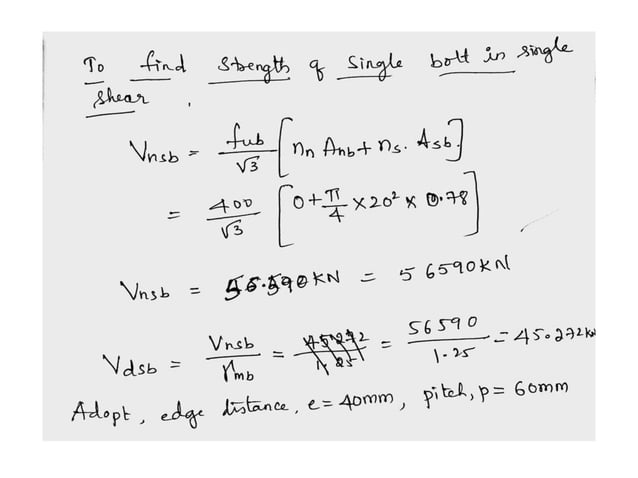 To find Strength of Single bolt in single
shear.
Vnsb = fub/√3 [nn Anb + ns. Asb]
= 400/√3 [0 + π/4 × 20² × 0.78]
Vnsb = 56.590 KN = 56590 KN
Vdsb = Vnsb/γmb = = 56590/1.25 = 45.272 KN
Adopt, edge distance, e = 40mm, pitch, p = 60mm